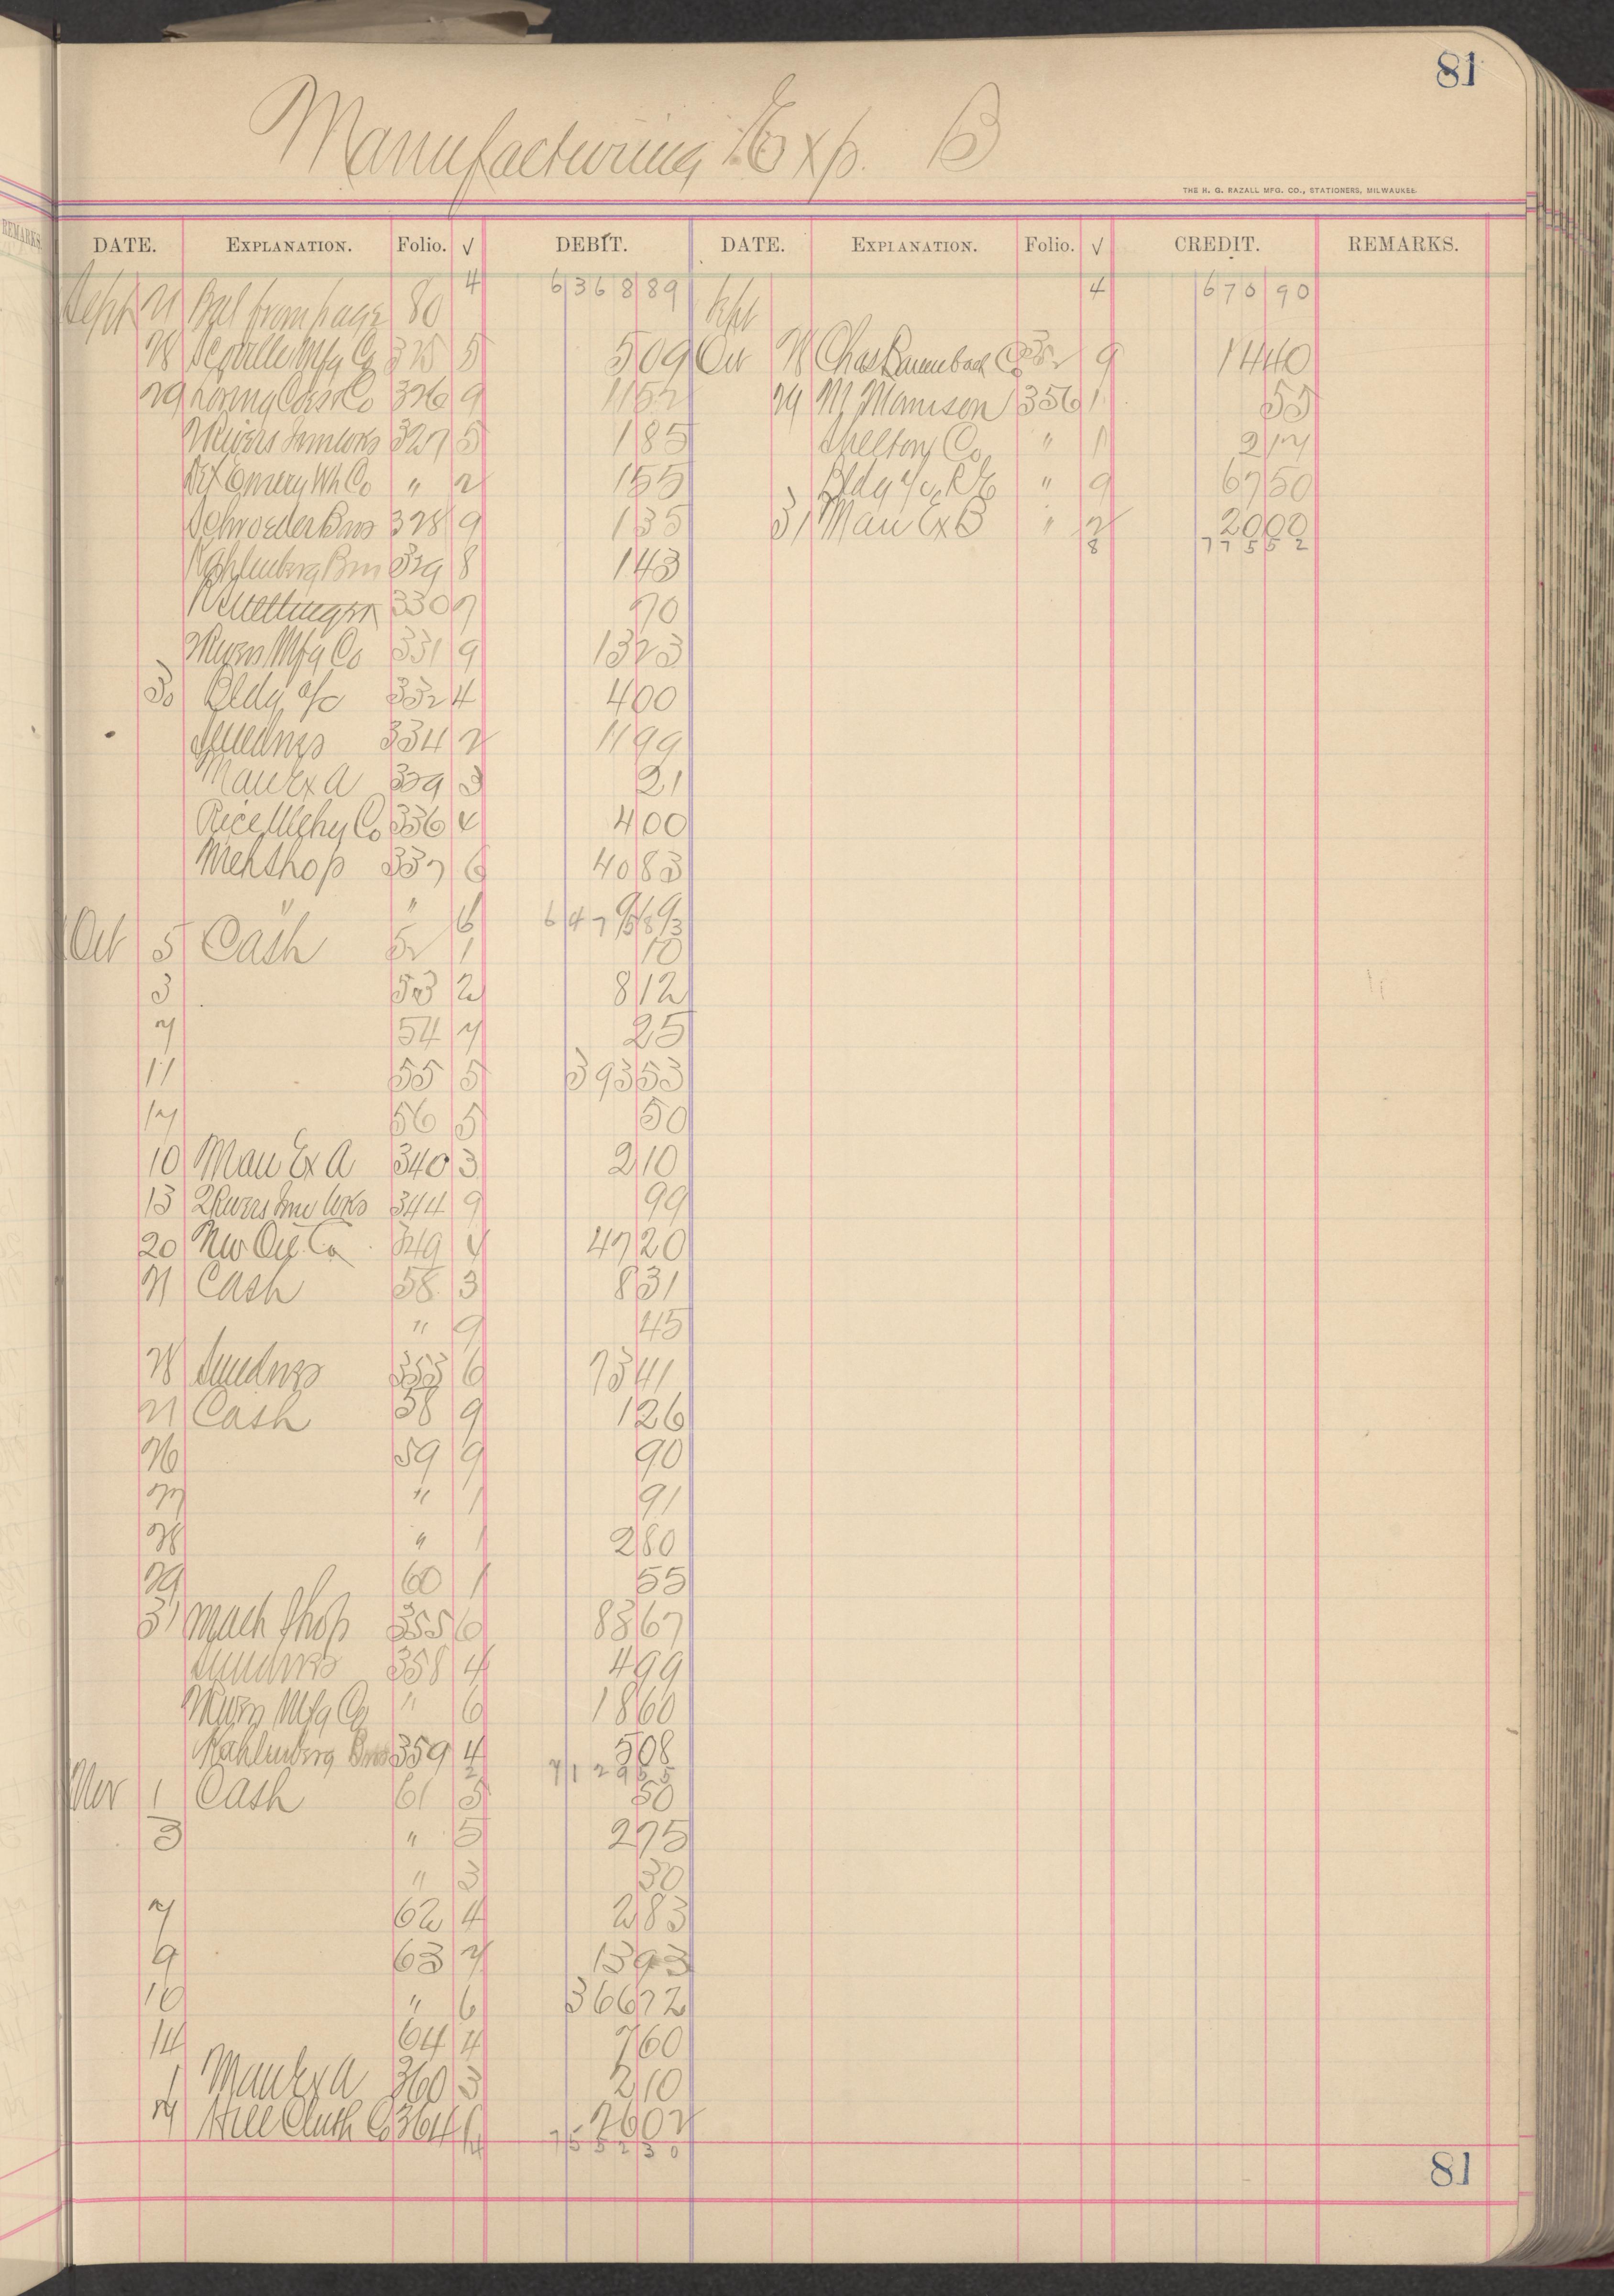 81
Manufacturing Exp. B
THE H. G. RAZALL MFG. CO., STATIONERS, MILWAUKEE.
REMARKS.
DATE. EXPLANATION. Folio. √ DEBIT. DATE. EXPLANATION. Folio. √ CREDIT. REMARKS.
Sept 21 Bal from page 80 4 6368 89 Sept 4 670 90
28 Scoville Mfg Co 325 5 5 09 Oct 28 Chas 9 14 40
29 Co 326 9 11 52 29 M Manson 356 1 55
2 Rivers Irnwks 327 5 1 85 Shelton Co " 1 2 17
Emery Wh Co " 2 1 55 Bldg a/c R E " 9 67 50
Schroeder Bros 328 9 1 35 31 Man Ex B " 2 20 00
8 775 52
Kahlenberg Bros 329 8 1 43
330 7 70
2 Rivers Mfg Co 331 9 13 23
30 Bldg a/c 332 4 4 00
Sundries 334 2 11 99
Man Ex A 339 3 21
Rice Co 336 4 4 00
Meh Shop 337 6 40 83
" " 6 9 69
6475 83
Oct 5 Cash 52 1 10
3 53 2 8 12
7 54 7 25
11 55 5 393 53
17 56 5 50
10 Man Ex A 340 3 2 10
13 2 Rivers Irn Wks 344 9 99
20 Nw Oil Co 349 4 47 20
21 Cash 58 3 8 31
" 9 45
28 Sundries 353 6 73 41
21 Cash 58 9 1 26
26 59 9 90
27 " 1 91
28 " 1 2 80
29 60 1 55
31 Mach Shop 355 6 83 67
Sundries 358 4 4 99
2 Rivers Mfg Co " 6 18 60
Kahlenberg Bros 359 4 5 08
2 7129 55
Nov 1 Cash 61 5 50
3 " 5 2 75
" 3 30
7 62 4 2 83
9 63 7 13 93
10 " 6 366 72
14 64 4 7 60
1 Man Ex A 360 3 2 10
7 Hill Cluth Co 364 26 02
4 7552 30
81